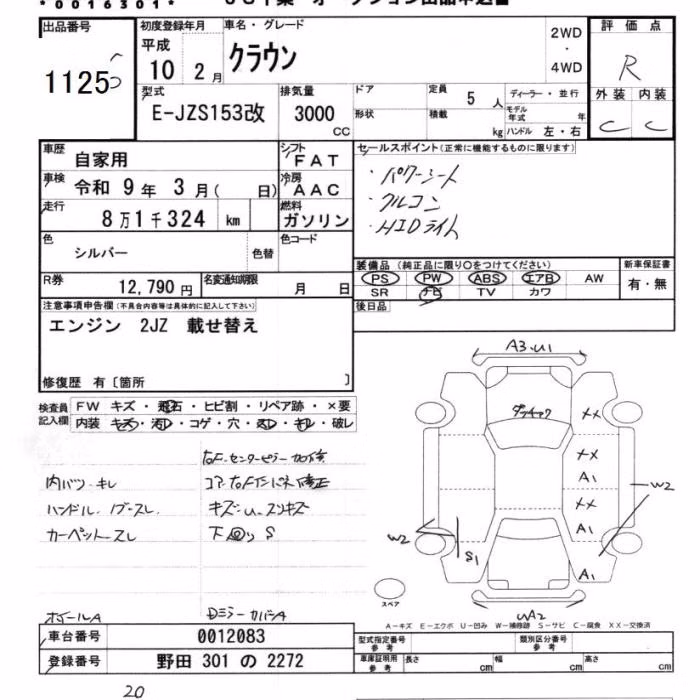 *0016301*
出品番号
1125
初度登録年月
平成
10 2月
車名・グレード
クラウン
2WD
・
4WD
評価点
R
外装 内装
C C
型式
E-JZS153改
排気量
3000
CC
ドア
形状
定員
5 人
積載
kg
ディーラー・並行
モデル年式 年
ハンドル 左・右
車歴
自家用
シフト
FAT
車検
令和 9年 3月( 日)
冷房
AAC
走行
8万1千324 km
燃料
ガソリン
色
シルバー
色替
色コード
R券
12,790円
名変通知期限
月 日
セールスポイント(正常に機能するものに限ります)
・パワーシート
・クルコン
・HIDライト
装備品 (純正品に限り〇をつけてください)
PS PW ABS エアB AW
SR ナビ TV カワ
新車保証書
有・無
後日品
注意事項申告欄(不具合内容等は具体的に記入して下さい)
エンジン 2JZ 載せ替え
修復歴 有〔箇所 〕
検査員記入欄
FW キズ・飛石・ヒビ割・リペア跡・×要
内装 キズ・汚れ・コゲ・穴・スレ・キレ・破レ
右F.センターピラー
内バツ キレ
ハンドル.ノブ スレ
カーペット スレ
キズ・U.スリキズ
下回り S
ホイールA
DミラーカバーA
A3.U1
XX
XX
A1
XX
A1
A1
W2
W2
S1
WA2
スペア
A-キズ E-エクボ U-凹み W-補修跡 S-サビ C-腐食 XX-交換済
車台番号
0012083
登録番号
野田 301 の 2272
型式指定番号
参考
類別区分番号
参考
車庫証明用
参考
長さ cm
幅 cm
高さ cm
20